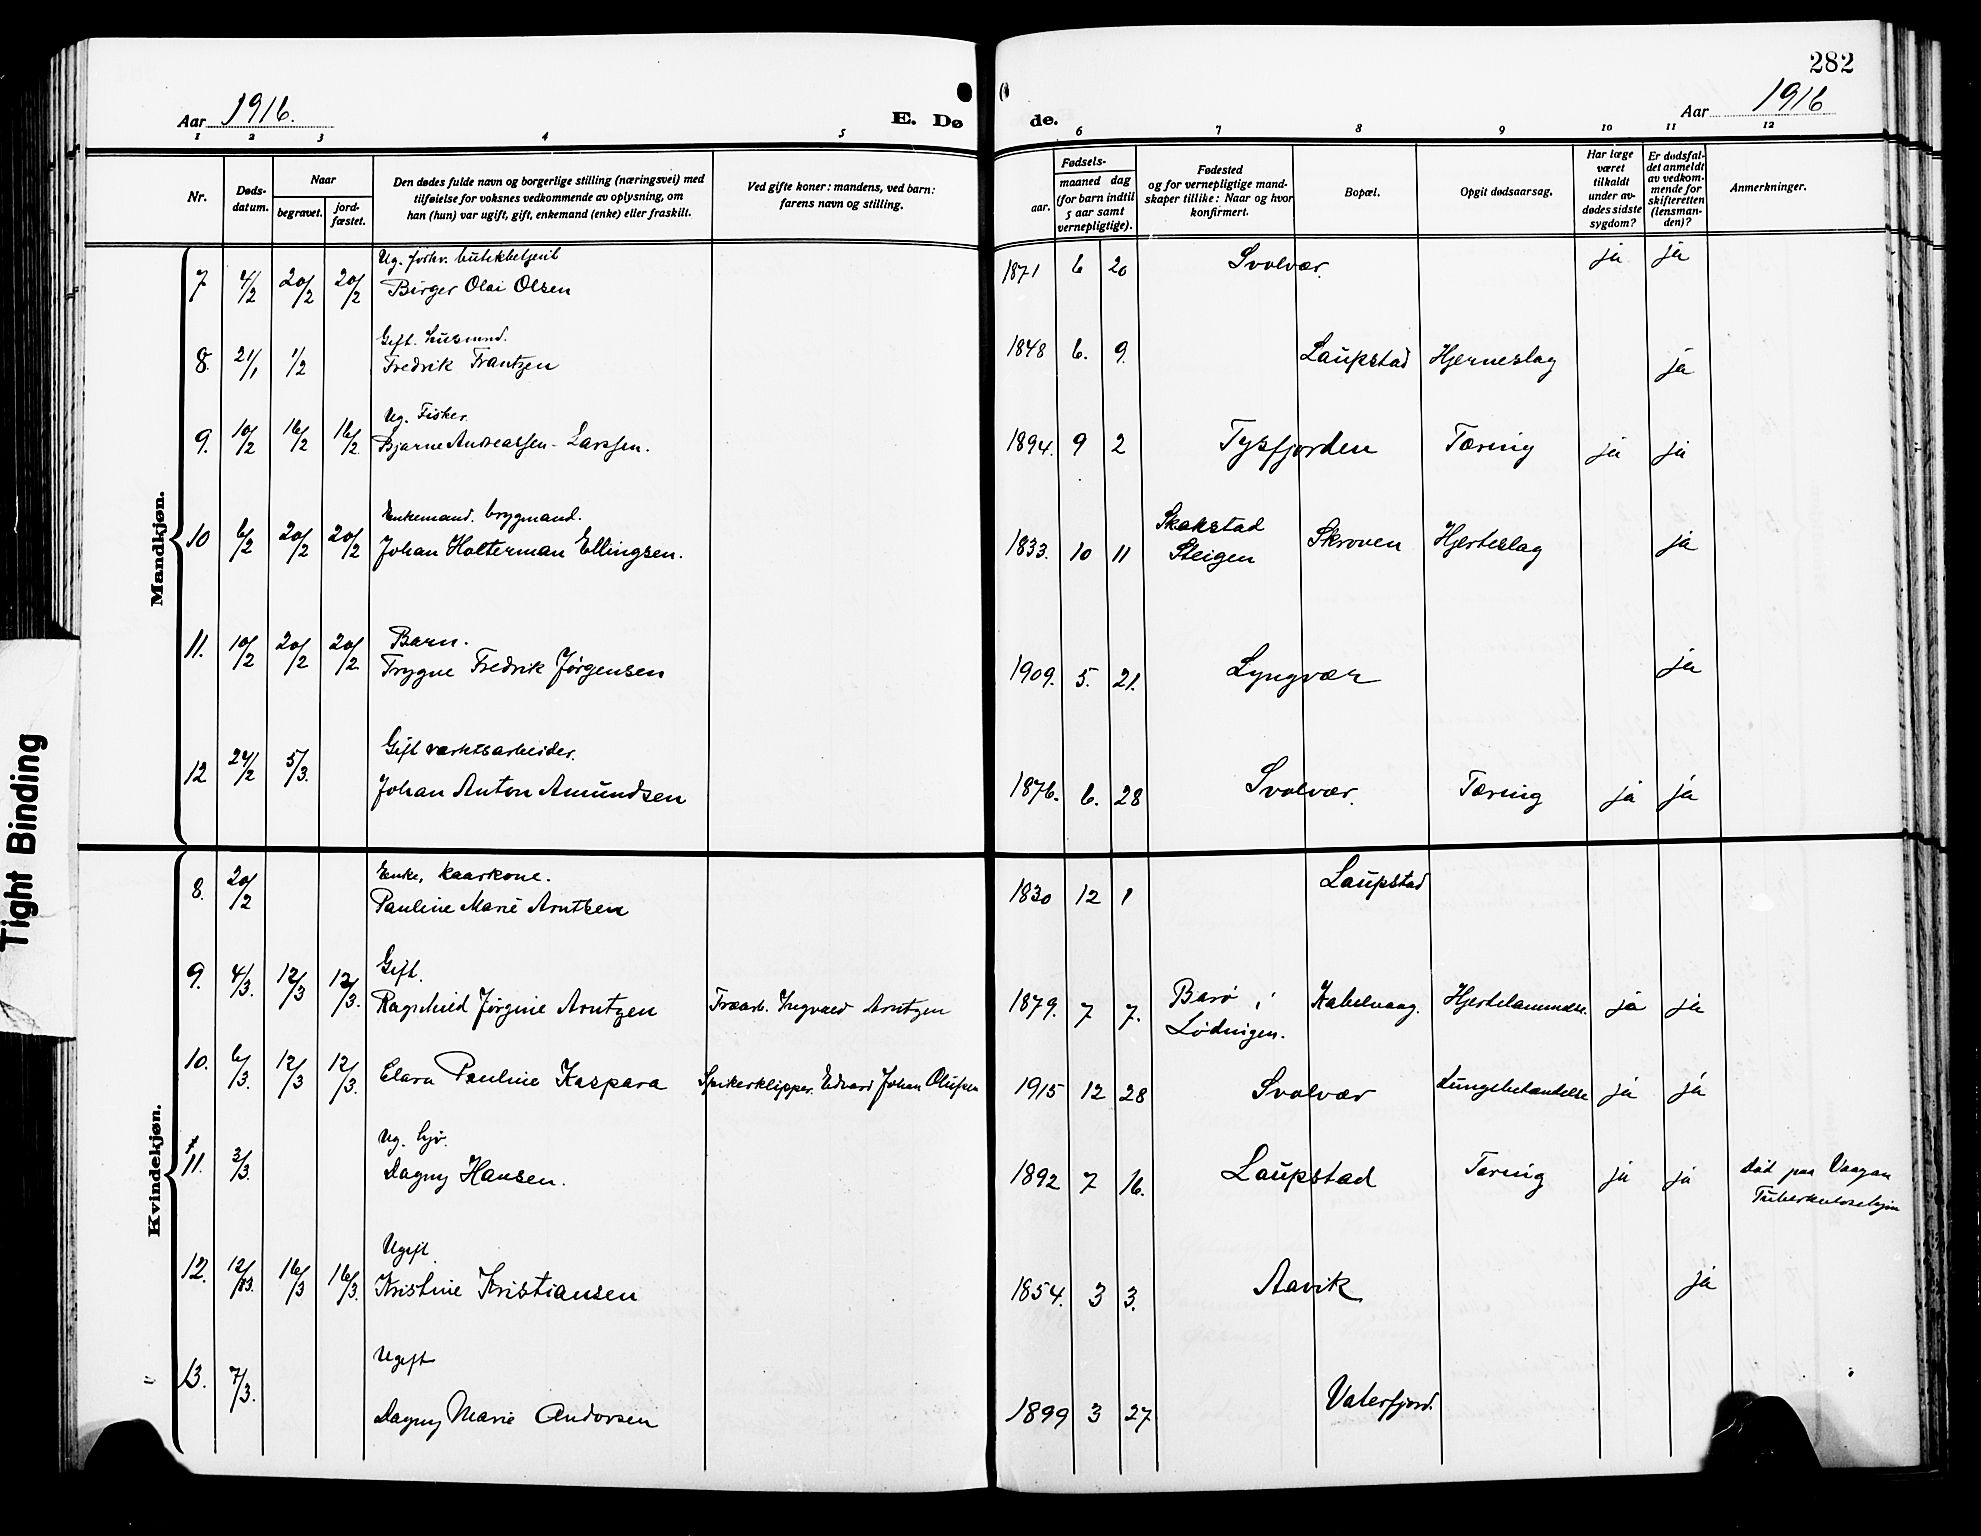 282
Aar 1916.
E. Dø
de.
Aar 1916
1 2 3 4 5
6 7 8 9 10 11 12
Nr.
Døds-
datum.
Naar
begravet.
jord-
fæstet.
Den dødes fulde navn og borgerlige stilling (næringsvei) med
tilføielse for voksnes vedkommende av oplysning, om
han (hun) var ugift, gift, enkemand (enke) eller fraskilt.
Ved gifte koner: mandens, ved barn:
farens navn og stilling.
Fødsels-
aar.
maaned dag
(for barn indtil
5 aar samt
vernepligtige).
Fødested
og for vernepligtige mand-
skaper tillike: Naar og hvor
konfirmert.
Bopæl.
Opgit dødsaarsag.
Har læge
været
tilkaldt
under av-
dødes sidste
sygdom?
Er dødsfal-
det anmeldt
av vedkom-
mende for
skifteretten
(lensman-
den)?
Anmerkninger.
Mandkjøn.
Ug. forhv. butikbetjent
7 4/2 20/2 20/2 Birger Olai Olsen 1871 6 20 Svolvær. ja ja
Gift. husmand.
8. 21/1 1/2 Fredrik Frantzen 1848 6. 9. Laupstad Hjerneslag ja
Ug. Fisker
9. 10/2 16/2 16/2. Bjarne Andreassen - Larssen. 1894. 9 2 Tysfjorden Tæring ja ja
Enkemand. brygmand.
10 6/2 20/2 20/2 Johan Holterman Ellingsen. 1833. 10 11 Skakstad Steigen Skroven Hjerteslag ja
Barn.
11. 10/2 20/2 20/2 Trygve Fredrik Jørgensen 1909. 5. 21. Lyngvær ja
Gift værktsarbeider.
12 24/2 5/3. Johan Anton Amundsen 1876. 6. 28 Svolvær. Tæring ja ja
Kvindekjøn.
Enke, kaarkone.
8. 20/2 Pauline Marie Arntsen 1830 12 1 Laupstad
Gift.
9. 4/3. 12/3 12/3. Ragnhild Jørgine Arntzen Træarb. Ingvald Arntzen 1879. 7 7. Barø i Lødingen. Kabelvaag. Hjertelammelse. ja ja
10. 6/3. 12/3 12/3. Clara Pauline Kaspara Spikerklipper. Edvard Johan Olufsen 1915 12 28 Svolvær Lungebetændelse ja ja
Ug. tjv.
11. 3/3. Dagny Hansen. 1892 7 16. Laupstad Tæring ja ja Død paa Vaagan
Tuberkulosehjem
Ugift.
12. 12/3. 16/3 16/3. Kristine Kristiansen 1854. 3 3. Aavik ja
Ugift
13. 7/3. Dagny Marie Andorsen 1899 3 27 Vaterfjord.
Tight Binding